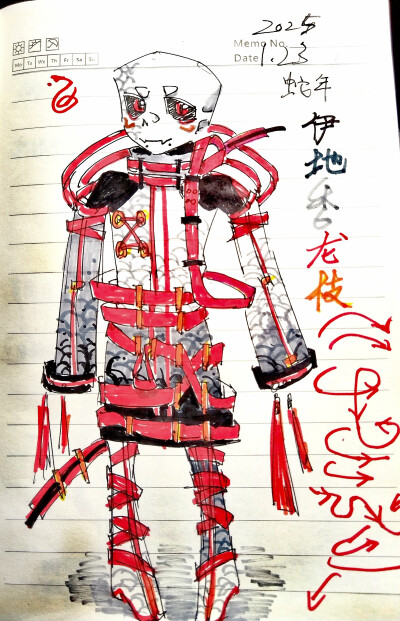 Mo Tu We Th Fr Sa Su
2025
Memo No.
Date 1.23
蛇年
伊地
龙伎